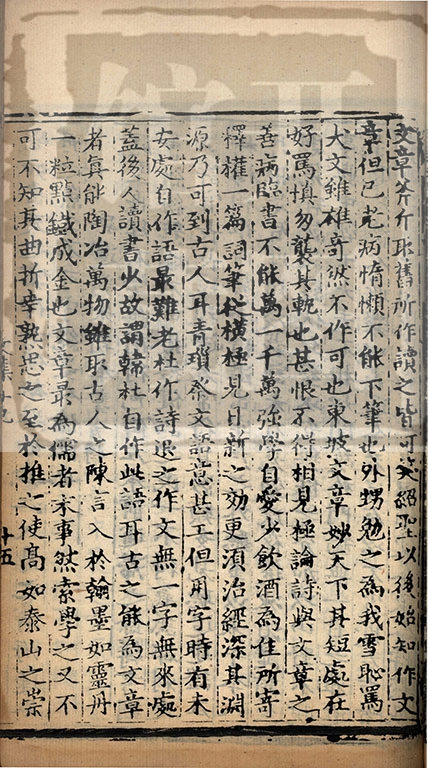 文章斧斤取舊所作讀之皆可笑紹聖以後始知作文
章但已老病惰懶不能下筆也外甥勉之為我雪恥罵
犬文雖雄奇然不作可也東坡文章妙天下其短處在
好罵慎勿襲其軌也甚恨不得相見極論詩與文章之
善病臨書不能萬一千萬強學自愛少飲酒為佳所寄
釋權一篇詞筆從橫極見日新之効更須治經深其淵
源乃可到古人耳青瑣祭文語意甚工但用字時有未
安處自作語最難老杜作詩退之作文無一字無來處
蓋後人讀書少故謂韓杜自作此語耳古之能為文章
者真能陶冶萬物雖取古人之陳言入於翰墨如靈丹
一粒點鐵成金也文章最為儒者末事然索學之又不
可不知其曲折幸熟思之至於推之使高如泰山之崇
文集十九
十五